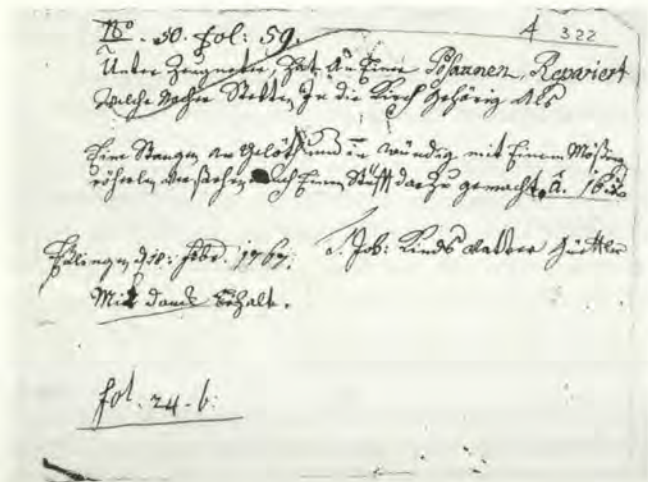 No. 50. fol: 59.
A 322
Unter Zeugneter, hat An Einer Posaunen, Repariert
Welche Nacher Stetten In die Kirch gehörig Als
Eine Stangen An gelöth und in wändig mit Einem Mößen
röhrlen versehen, Auch Einen Stifft darzu gemacht, â. 16 x
d. 18: febr. 1767.
Mit danck Erhalt.
fol. 24. b: